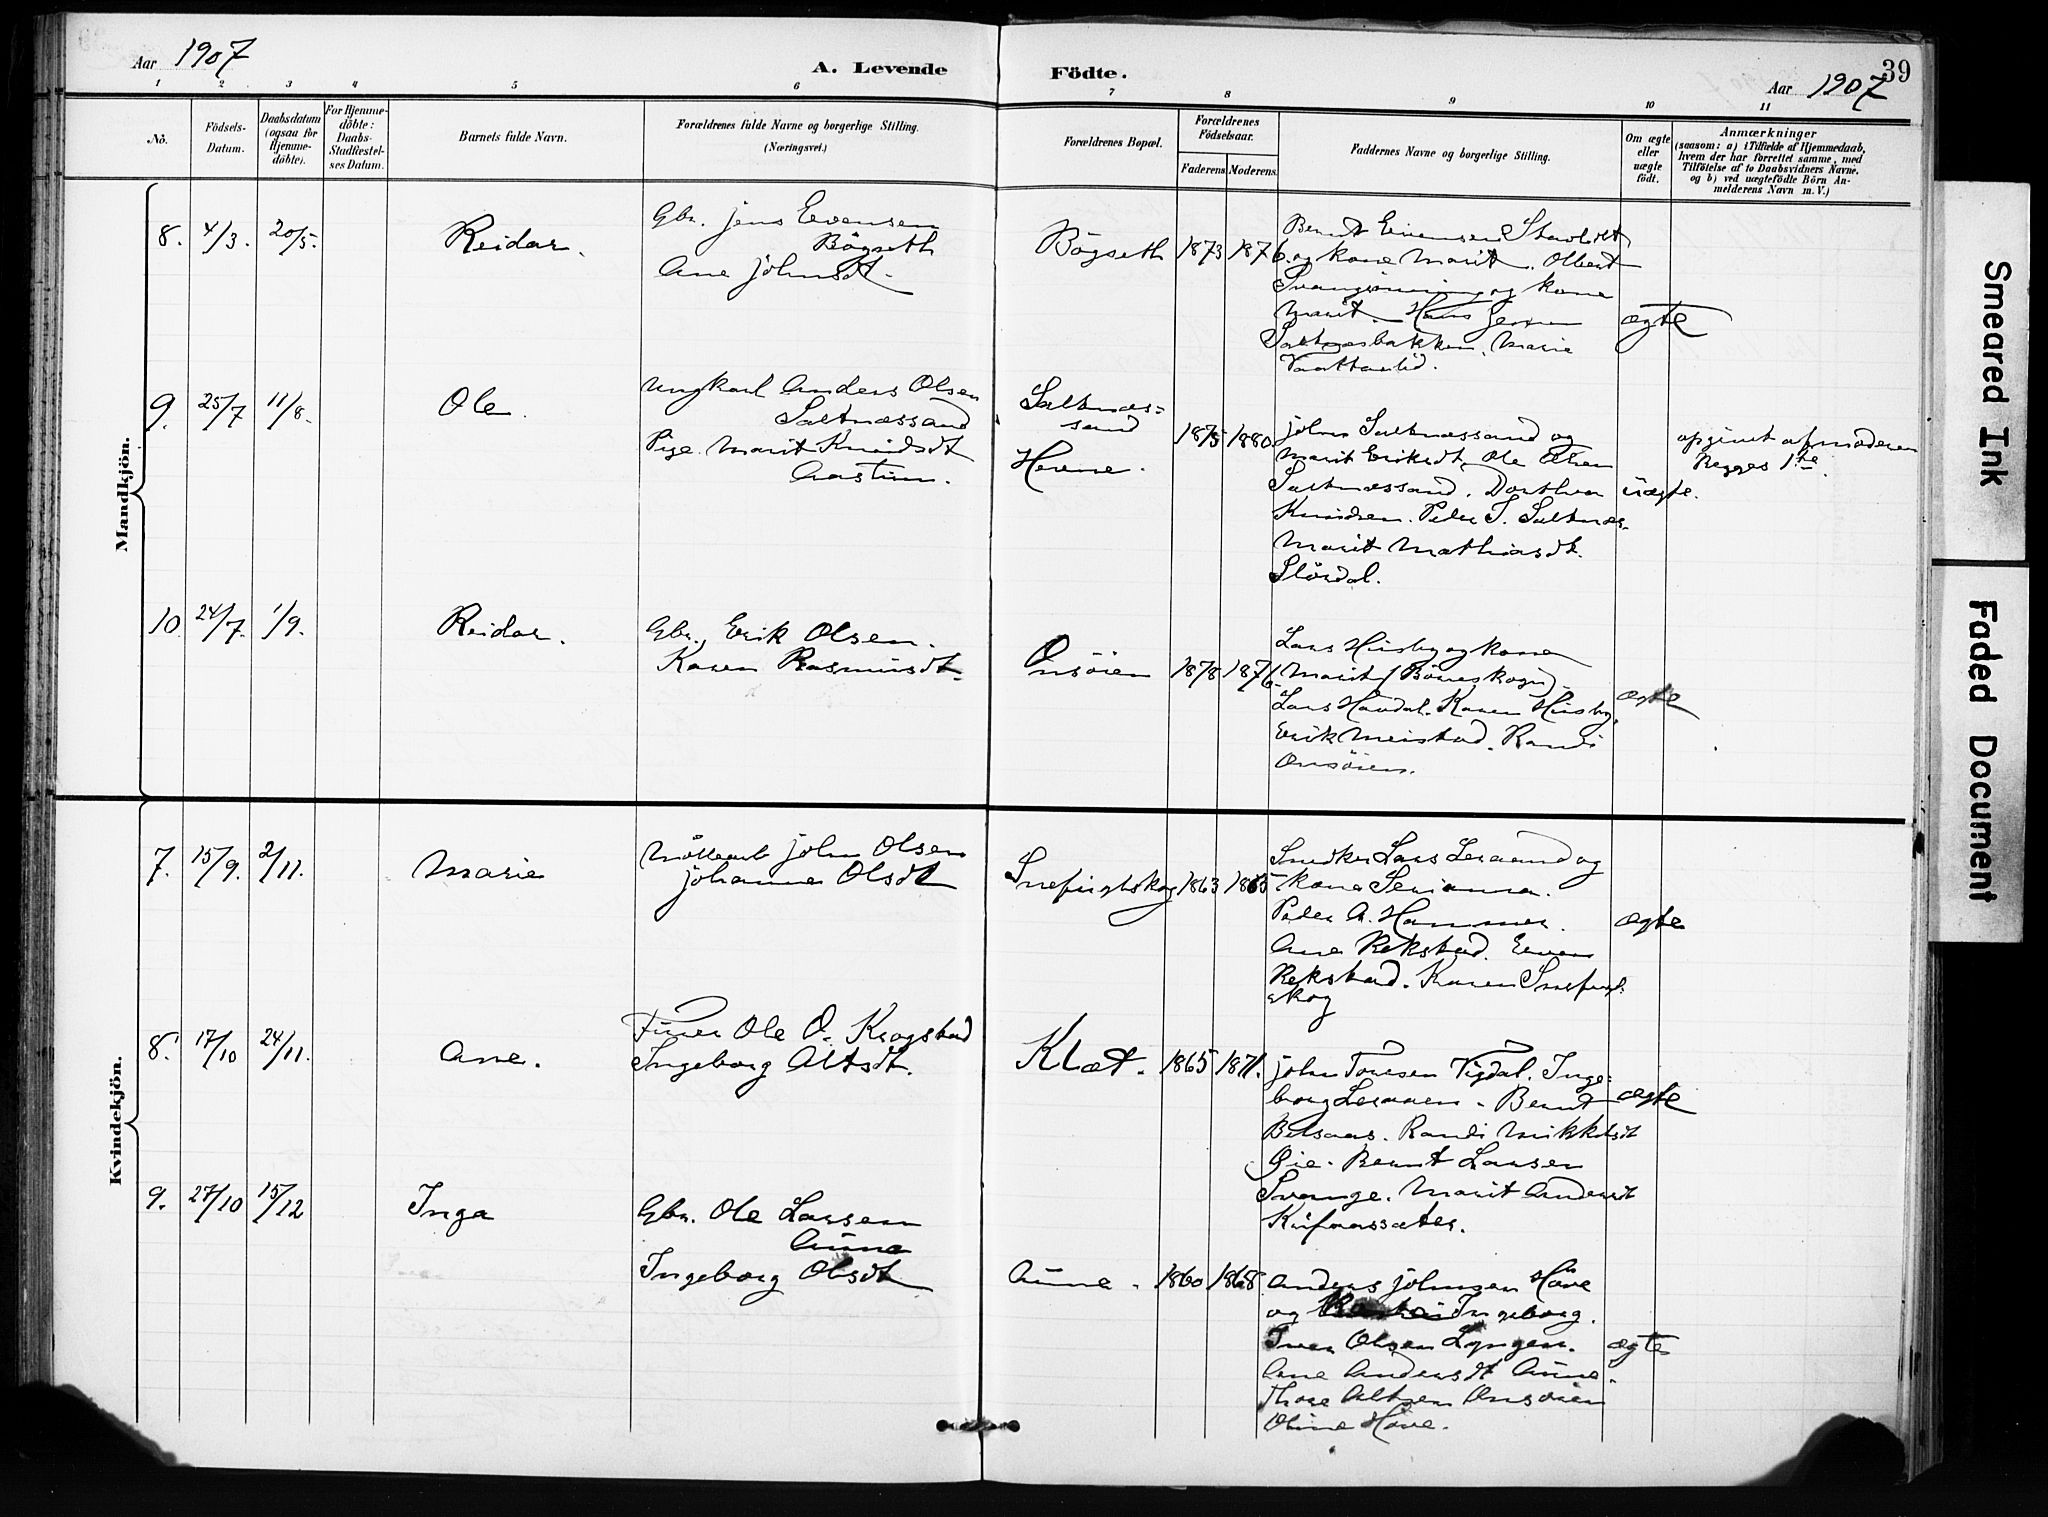 Aar 1907
A. Levende
Födte.
39
Aar 1907
1 2 3 4 5 6 7 8 9 10 11
No.
Födsels-
Datum.
Daabsdatum
(ogsaa for
Hjemme-
döbte).
For Hjemme-
döbte:
Daabs-
Stadfæstel-
ses Datum.
Barnets fulde Navn.
Forældrenes fulde Navne og borgerlige Stilling.
(Næringsvei.)
Forældrenes Bopæl.
Forældrenes
Födselsaar.
Faderens. Moderens.
Faddernes Navne og borgerlige Stilling.
Om ægte
eller
uægte
født.
Anmærkninger
(saasom: a) i Tilfælde af Hjemmedaab,
hvem der har forrettet samme, med
Tilföielse af to Daabsvidners Navne.
og b) ved uægtefödte Börn An-
melderens Navn m. V.)
Mandkjön.
8. 4/3. 20/5. Reidar.
Gbr. Jens Evensen
Bögseth
Ane Johnsdt.
Bögseth 1873 1876
Bernt Evensen
og kone Marit. Olbert
og kone
Marit. Hans
Saltnesbakken. Marie
ægte
9. 25/7 11/8. Ole.
Ungkarl Anders Olsen
Saltnæssand
Pige. Marit Knudsdt
Saltnæs-
sand
Hovne.
1875 1880
John Saltnæssand og
Marit Eriksdt. Ole Olsen
Saltnæssand. Dorthea
Knudsen. Peder S. Saltnes.
Marit Mathiasdt.
Slördal.
uægte.
opgivet af moderen
Begges 1ste.
10. 24/7. 1/9. Reidar.
Gbr. Erik Olsen.
Karen Rasmusdt.
Onsöien 1878 1876
Lars Husby og kone
Marit
Lars Havdal. Karen Husby.
Erik Meistad. Randi
Onsöien.
ægte
Kvindekjön.
7. 15/9. 2/11. Marie
John Olsen
Johanna Olsdt
Snefuglskog 1863 1865
Snedker Lars Leraand og
kone Serianna.
Peder A. Hammer.
Ane Rekstad. Even
Rekstad. Karen Snefugl-
skog
ægte
8. 17/10 24/11. Ane.
Ole O. Krogstad
Ingeborg Altsdt.
Klæt. 1865 1871.
John Tigdal. Inge-
borg Leraaen. Bernt
Betsaas. Randi Mikkelsdt
Øie. Bernt Larsen
Svange. Marit Andersdt
ægte
9. 27/10 15/12 Inga
Gbr. Ole Larsen
Aune
Ingeborg Olsdt
Aune. 1860 1868
Anders Johnsen Hove
og Ingeborg.
Iver Olsen Lyngen.
Ane Andersdt Aune.
Thore Altsen Onsöien
Oline Hove.
ægte
Smeared Ink
Faded Document